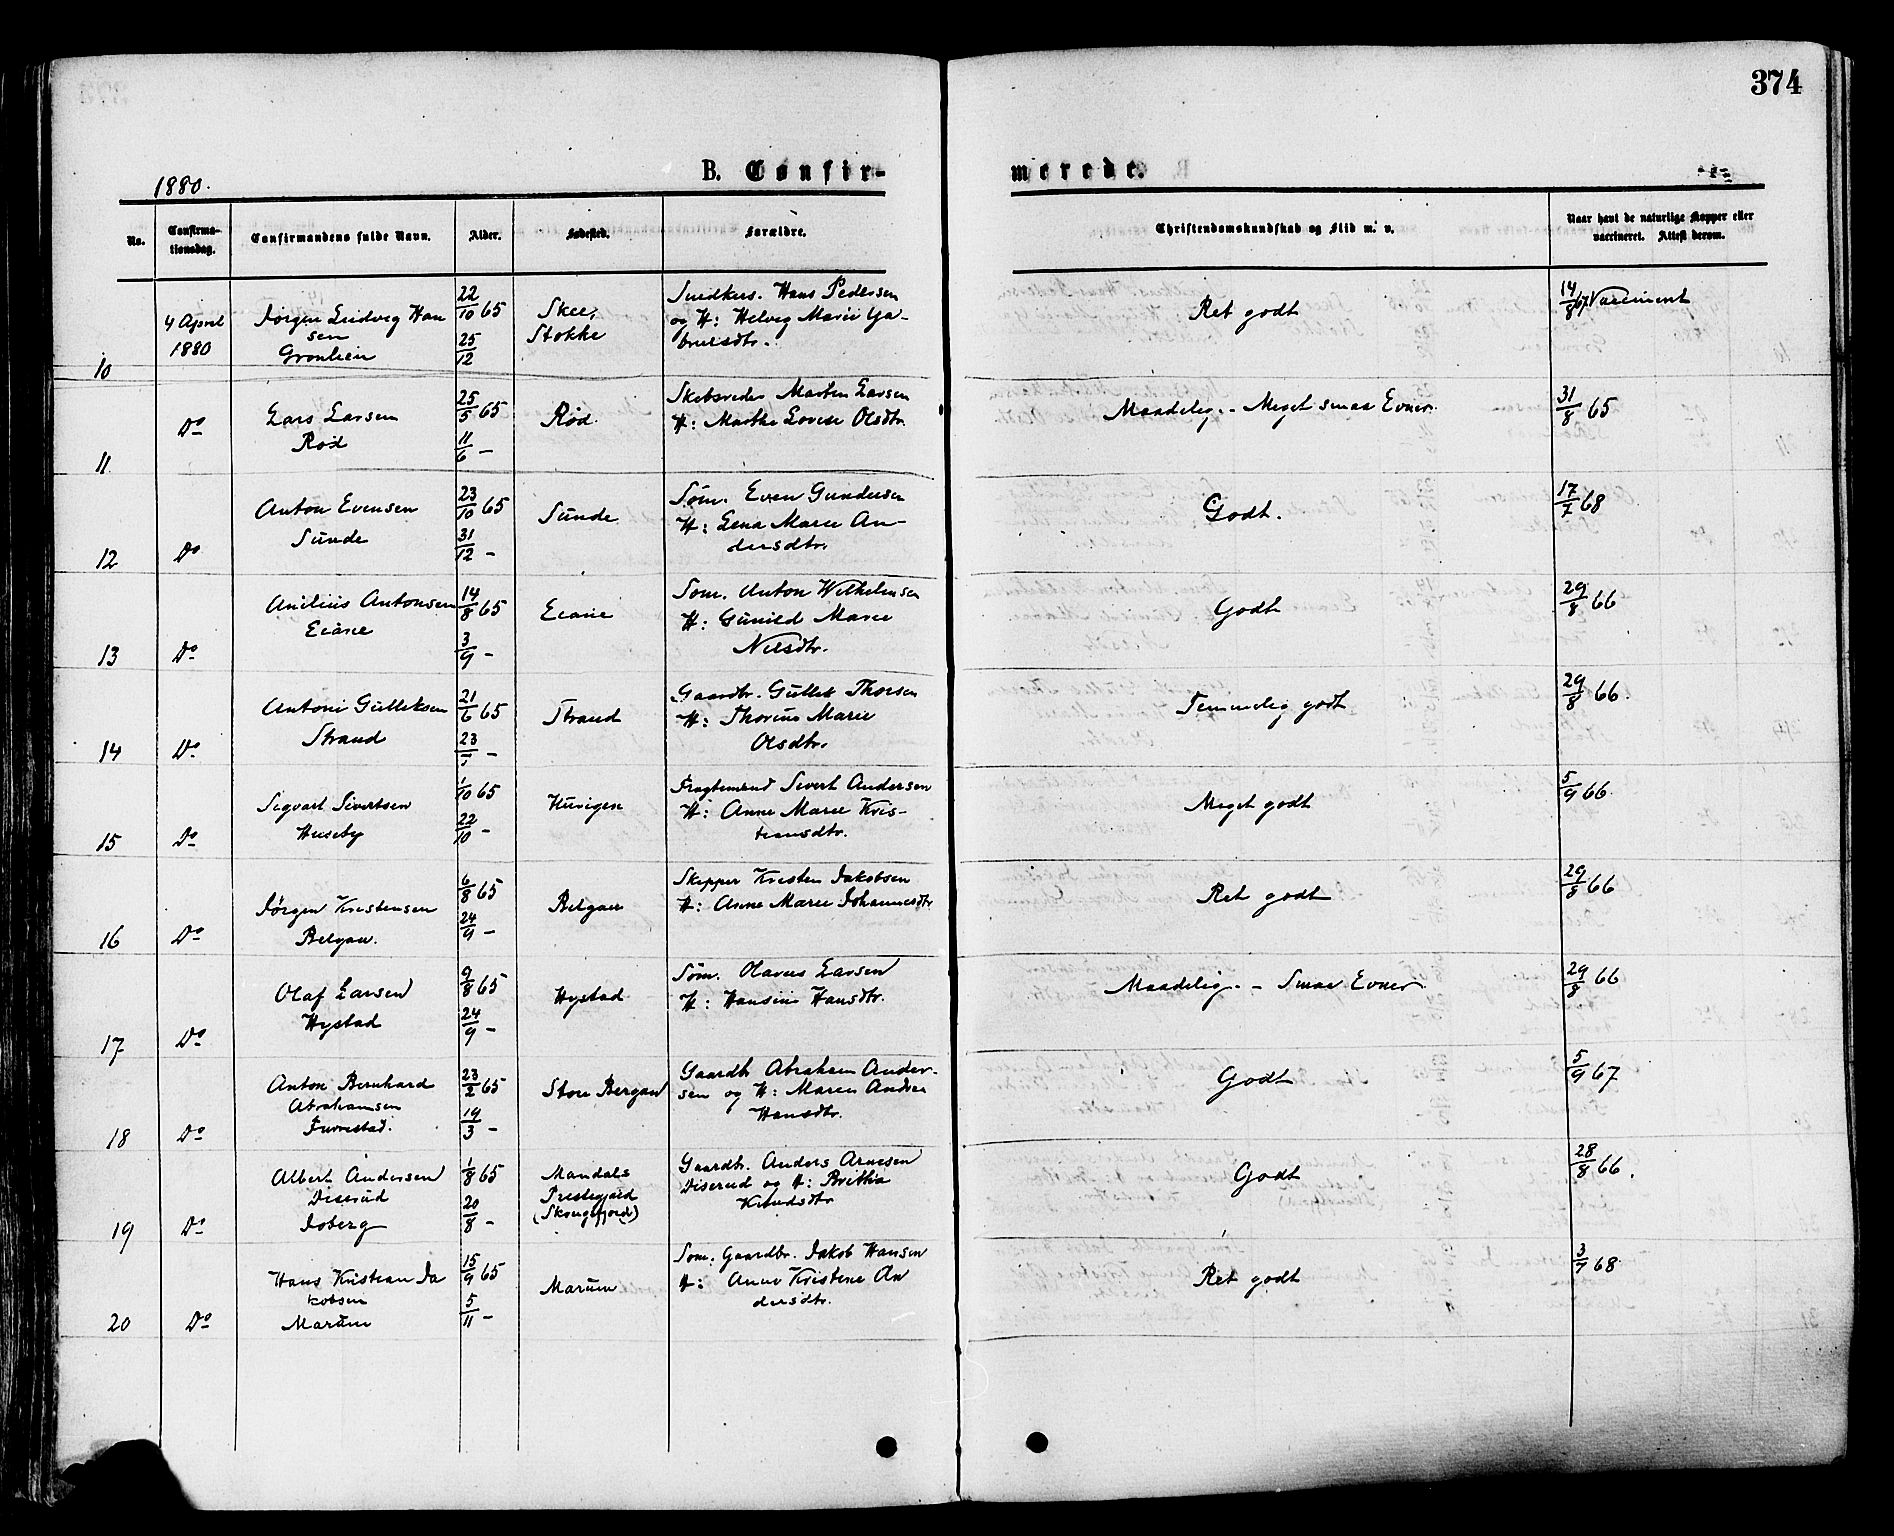 374
1880.
B. Confirmerede.
No.
Confirmationsdag.
Confirmandens fulde Navn.
Alder.
Fødested.
Forældre.
Christendomskundskab og Flid m. v.
Naar havt de naturlige Kopper eller vaccineret. Attest derom.
10
4 April 1880
Jørgen Ludvig Hansen
22/10 65
25/12
Skee, Stokke
Snedkers. Hans Pedersen
og H: Helvig Marie Gabrielsdtr.
Ret godt
14/8 67
11
Do
Lars Larsen
Rød
25/5 65
11/6 –
Rød
Marten Larsen
H: Marthe Lovise Olsdtr.
Maadelig. – Meget smaa Evner.
31/8 65
12
Do
Anton Evensen
Sunde
23/10 65
31/12 –
Sunde
Søm. Even Gundersen
H: Lena Marie Andersdtr.
Godt.
17/7 68
13
Do
Antonsen
14/8 65
3/9 –
Søm. Anton Wilhelmsen
H: Gunild Marie
Nilsdtr.
Godt
29/8 66
14
Do
Antoni Gulleksen
Strand
21/6 65
23/7 –
Strand
Gaardbr. Gullek Thorsen
H: Thorine Marie
Olsdtr.
Temmelig godt
29/8 66.
15
Do
Sigvart Sivertsen
Huseby
1/10 65
22/10 –
Sivert Andersen
H: Anne Marie Kristiansdtr.
Meget godt
5/9 66.
16
Do
Jørgen Kristensen
Belgau.
6/8 65
24/9 –
Belgau
Skipper Kristen Jakobsen
H: Anne Marie Johannesdtr.
Ret godt
29/8 66
17
Do
Olaf Larsen
Hystad
9/8 65
24/9 –
Hystad
Søm. Olavus Larsen
H: Hansine Hansdtr.
Maadelig. – Smaa Evner.
29/8 66
18
Do
Anton Bernhard
Abrahamsen
Furrestad.
23/2 65
19/3 –
Store Bergan
Gaardb. Abraham Andersen og H: Maren Andrea
Hansdtr.
Godt
5/9 67
19
Do
Albert Andersen
Diserud
Joberg
1/8 65
20/8 –
Mandals
Prestegjæld
Gaardb. Anders Arnesen
Diserud og H: Britha
Knudsdtr
Godt
28/8 66.
20
Do
Hans Kristian Jakobsen
Marum
15/9 65
5/11 –
Marum
Søm. Gaardbr. Jakob Hansen
H: Anne Kristine Andersdtr.
Ret godt
3/7 68.